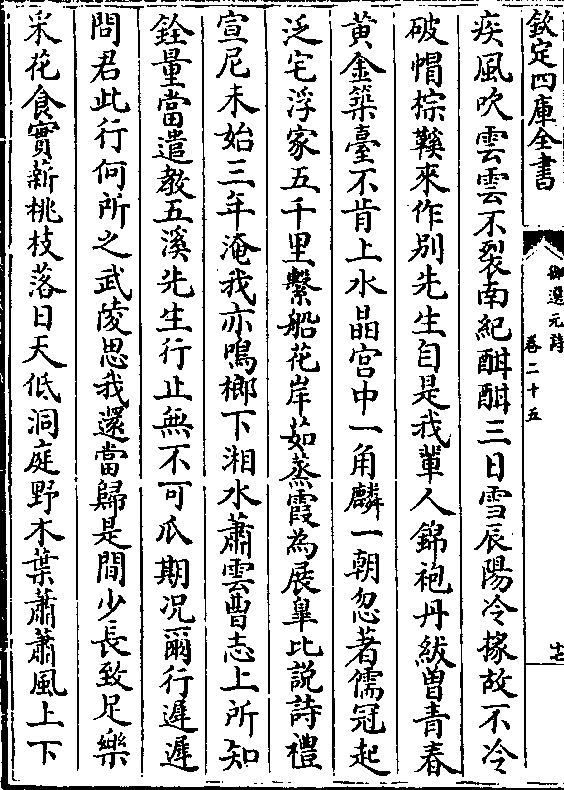 欽定四庫全書
御選元詩
卷二十五
十七
疾風吹雲雲不裂南紀酣酣三日雪辰陽冷掾故不冷
破帽棕鞵來作别先生自是我軰人錦袍丹紱曽青春
黄金築臺不肯上水晶宫中一角麟一朝忽著儒冠起
泛宅浮家五千里繫船花岸茹蒸霞為展臯比説詩禮
宣尼未始三年淹我亦鳴榔下湘水蕭雲曹志上所知
銓量當遣教五溪先生行止無不可瓜期况爾行遲遲
問君此行何所之武陵思我還當歸是間少長致足樂
采花食實薪桃枝落日天低洞庭野木葉蕭蕭風上下